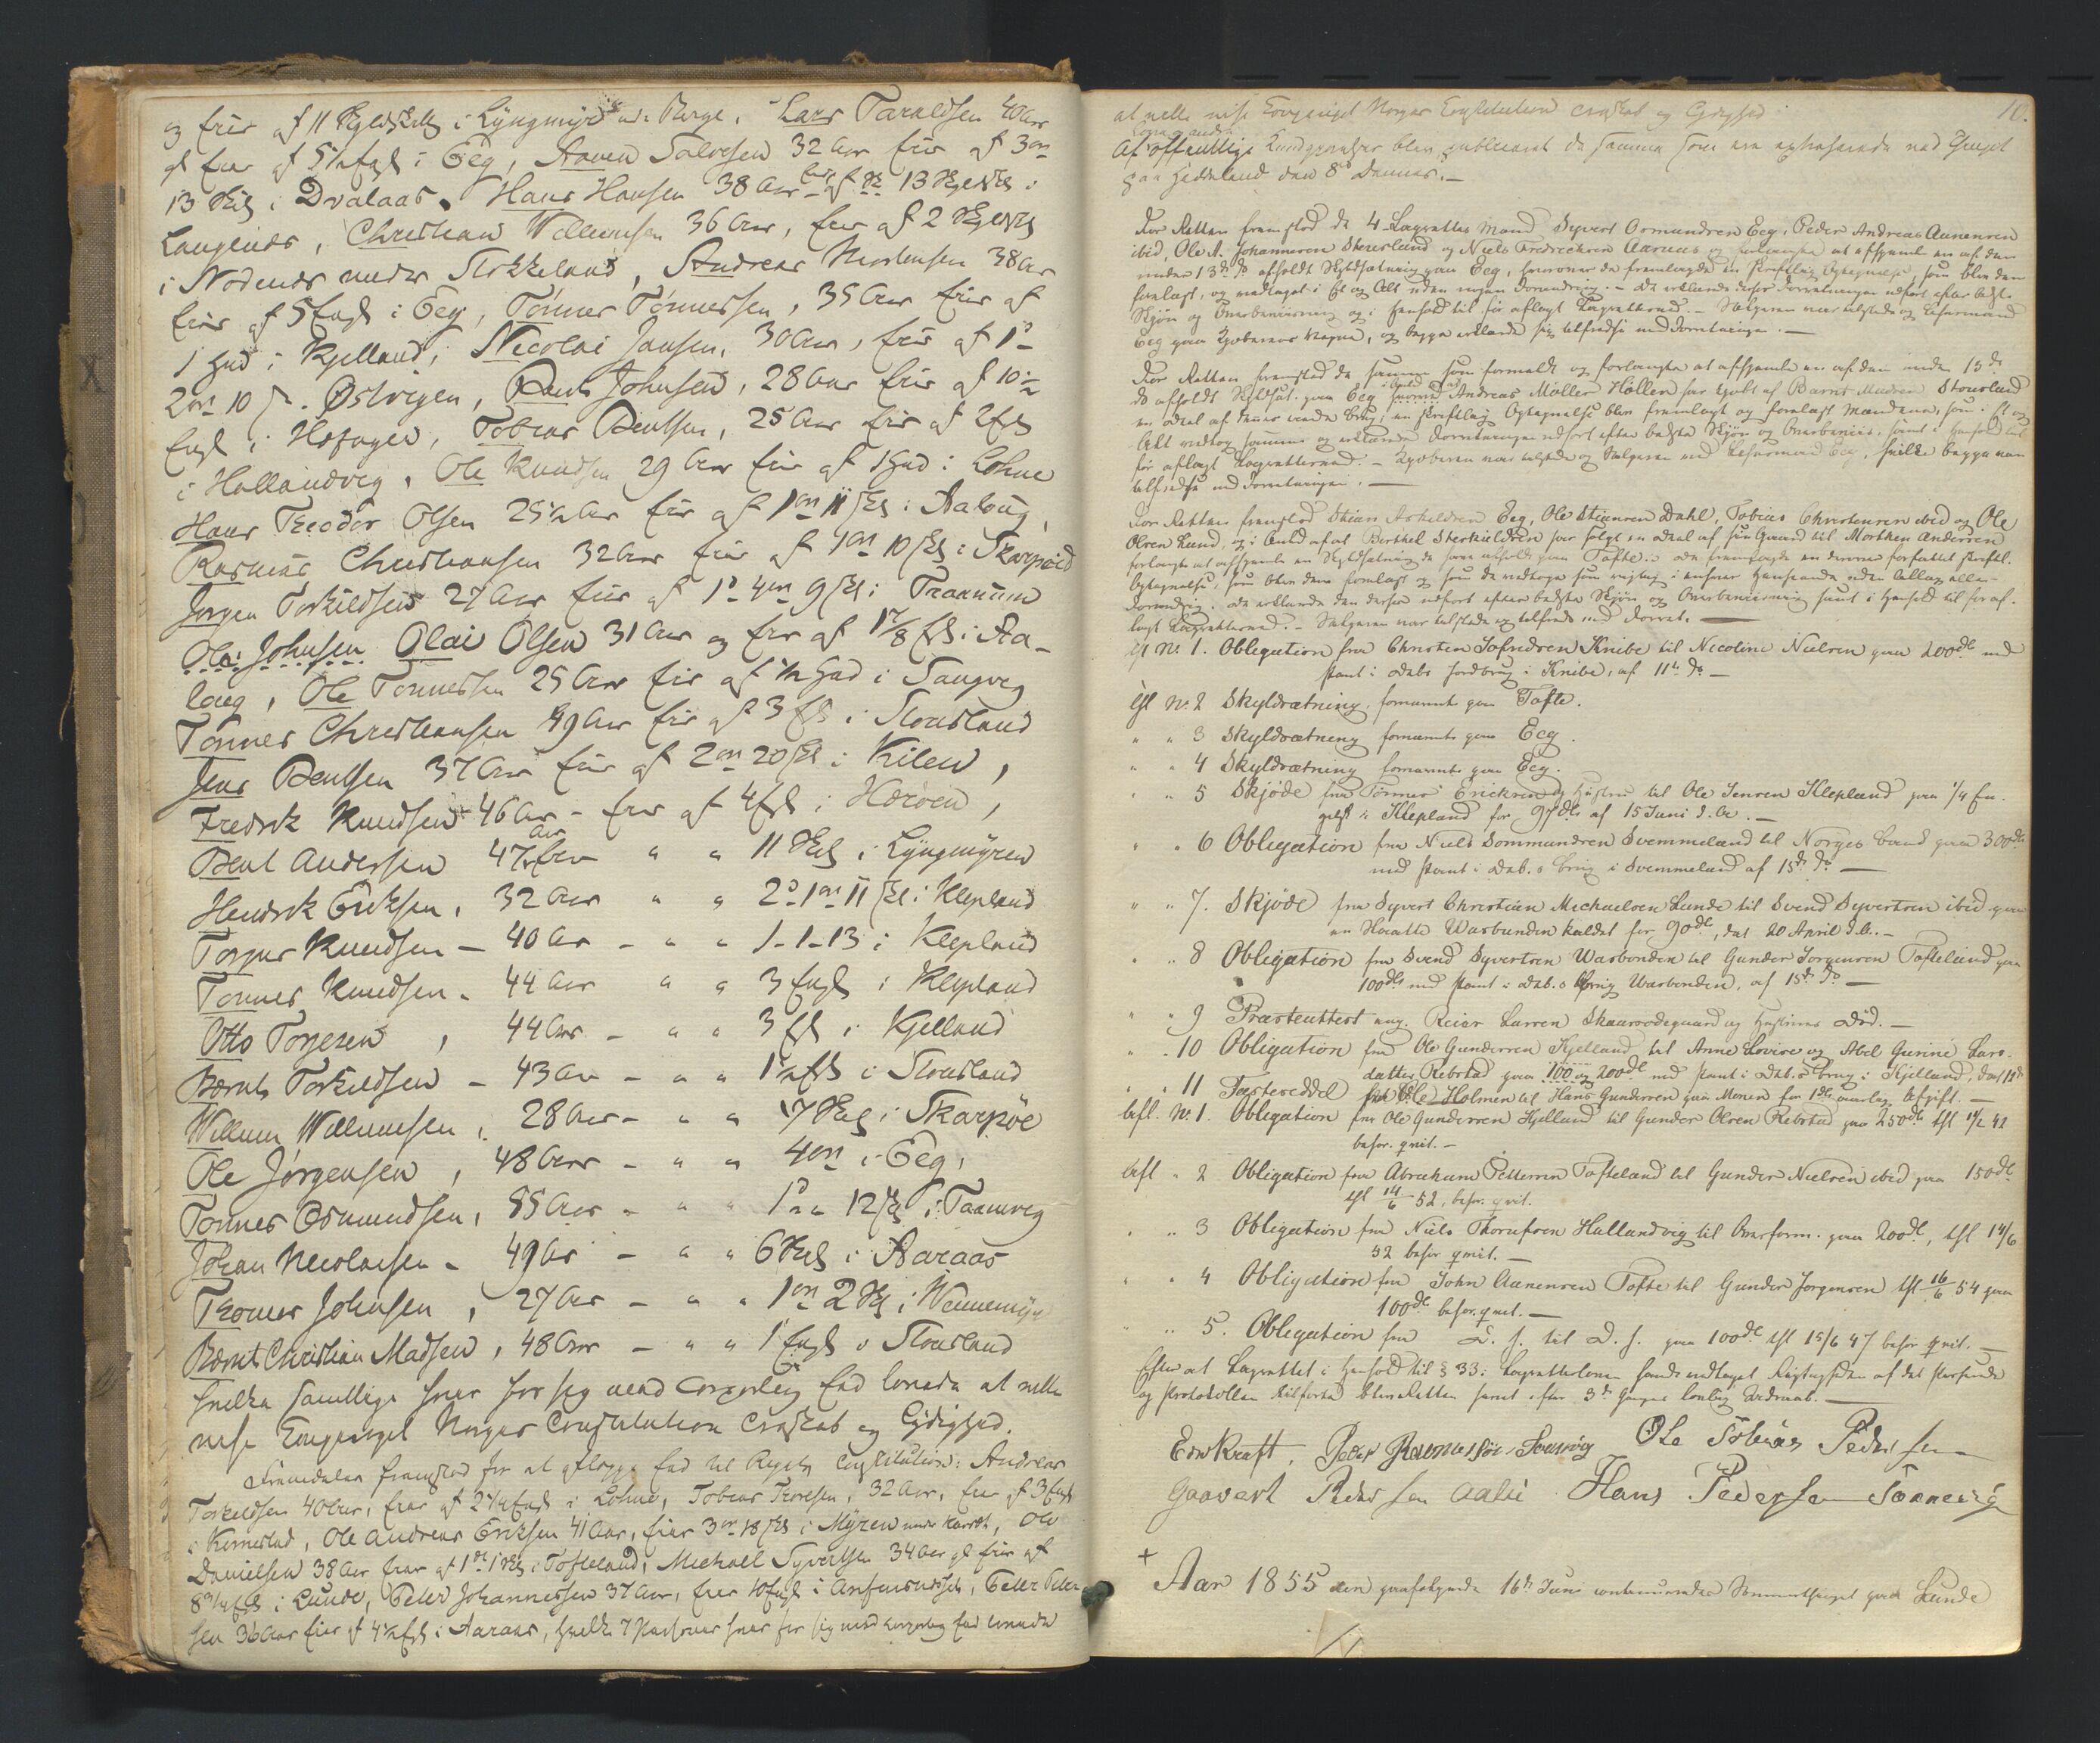 og Eier af 11 Skyldskill i Lyngmyr under Berge, Lars Taraldsen 40 Aar
gl Eier af 5½ Engl i Eeg, Aanen Salvesen 32 Aar Eier af 3 ort
13 Skill i Dvalaas. Hans Hansen 38 Aar Eier af 13 Skyldsk i
Langenes, Christian Willumsen 36 Aar, Eier af 2 Skyldsk
i Nodenes under Stokkeland, Andreas Mortensen 38 Aar
Eier af 5 Engl i Eeg, Tönnes Tönnessen, 35 Aar Eier af
1 Hud i Kjelland, Nicolai Jansen, 30 Aar, Eier af 1
2 ort 10 s. Østvigen, Bent Johnsen, 28 Aar Eier af 10
Engl i Høfagen, Tobias Bentsen, 25 Aar Eier af 2 Engl
i Hallandvig, Ole Knudsen 29 Aar Eier af 1 Hud i Lohne
Hans Theodor Olsen 25½ Aar Eier af 1 ort 11 sk i Aaloug,
Rasmus Christiansen 32 Aar Eier af 4 ort 10 sk i Skarpeid
Jörgen Torkildsen 27 Aar Eier af 1 4 ort 9 sk i Traanum
Ole Johnsen Olai Olsen 31 Aar og Eier af 1 7/8 Engl i Aa-
loug, Ole Tönnessen 25 Aar Eier af ½ Hud i Tangvig
Tönnes Christiansen 49 Aar Eier af 3 Engl i Stousland
Jens Bentsen 37 Aar Eier af 2 ort 20 sk i Kilen,
Fredrik Knudsen 46 Aar - Eier af 4 Engl i Hæröen,
Bent Andersen 47 Aar Eier " " 11 Skill i Lyngmyren
Hendrik Eriksen, 32 Aar " " 2 1 ort 11 sk i Klepland
Torjus Knudsen - 40 Aar - " " 1-1-13 i Klepland
Tönnes Knudsen - 44 Aar " " 3 Engl i Klepland
Otto Torjesen, 44 Aar - " " 3 Engl i Kjelland
Bernt Torkildsen - 43 Aar - " " 1½ Engl i Stousland
Willum Willumsen, 28 Aar - " " 7 Skill i Skarpöe
Ole Jörgensen, 48 Aar - " " 4 ort i Eeg,
Tönnes Osmundsen, 55 Aar - " " 12 sk i Taamvig
Johan Nicolaisen - 49 Aar - " " 6 Skill i Aaraas
Thomas Johnsen, 27 Aar - " " 1 ort 2 sk i Wennemyr
Bernt Christian Madsen, 48 Aar - " " 1 Engl i Stousland
hvilke samtlige hver for sig med Corporlig Eed lovede at ville
vise Kongeriget Norges Constitution Troskab og Lydighed.
Fremdeles fremstod for at aflægge Eed til Rigets Constitution: Andreas
Torkildsen 40 Aar, Eier af 2¼ Engl i Lohne, Tobias Thoresen, 32 Aar, Eier af 3 Engl
i Rernestad, Ole Andreas Eriksen 41 Aar, Eier 3 ort 18 sk i Myren under, Ole
Danielsen 38 Aar Eier af 1 i Tofteland, Michael Syvertsen 34 Aar gl Eier af
8 Engl i Lunde, Peter Johannessen 37 Aar, Eier 10 Engl i, Peter Peter
sen 36 Aar Eier af 4½ Engl i Aaraas, hvilke 7 Personer hver for sig med corporlig Eed lovede
10.
at ville vise Kongeriget Norges Constitution Troskab og Lydighed
Af offentlige Kundgjørelser blev publiceret de samme som ere anførende ved Thinget
paa Heddeland den 8de Dennes. -
For Retten fremstod de 4 Lagrettes Mænd Syvert Osmundsen Eeg, Peder Andreas Aanensen
ibid, Ole A. Johannesen Stousland og Niels Fredriksen Aaraas og forlangte at afhjemle en af dem
under 13de ds afholdt Skyldsætning paa Eeg, hvorover de fremlagde en skriftlig Optegnelse, som blev dem
forelæst, og vedtaget i Et og Alt uden nogen Forandring. - De erklærede derfor Forretningen udført efter bedste
Skjøn og Overbeviisning og i Henhold til før aflagt Lagretteseed. - Sælgeren var tilstede og Lensmand
Eeg paa Kjøberens Vegne, og begge erklærede sig tilfredse med Forretningen. -
For Retten fremstod de samme som formeldt og forlangte at afhjemle en af dem under 13de
ds afholdt Skyldsæt. paa Eeg hvoraf Andreas Møller Höllen har kjøbt af Bernt Madsen Stousland
en Deel af dennes Brug, en skriftlig Optegnelse blev fremlagt og forelæst Mændene, som i Et og
Alt vedtog samme og erklærede Forretningen udført efter bedste Skjøn og Overbeviis. samt i Henhold til
før aflagt Lagretteseed. - Kjøberen var tilstede og Sælgeren ved Lensmand Eeg, hvilke begge var
tilfredse med Forretningen. -
For Retten fremstod Stian Askildsen Eeg, Ole Stiansen Dahl, Tobias Christensen ibid og Ole
Olsen Lund, og i Anled. af at Berthel Sterkieldsen har solgt en Deel af sin Gaard til Morthen Andersen
forlangte at afhjemle en Skyldsætning de have afholdt paa Tofte. De fremlagde en derover forfattet skriftl.
Optegnelse, som blev dem forelæst og som de vedtoge som rigtig i enhver Henseende uden Tillæg eller
Forandring. De erklærede den derfor udført efter bedste Skjøn og Overbeviisning samt i Henhold til før af-
lagt Lagretteseed. - Sælgeren var tilstede og tilfreds med Forret. -
No. 1. Obligation fra Christen Knibe til Nicoline Nielsen paa 200 dl med
Pant i Deb. Jordbrug i Knibe, af 11te ds -
No. 2 Skyldsætning fornævnte paa Tofte.
" " 3 Skyldsætning fornævnte paa Eeg.
" " 4 Skyldsætning fornævnte paa Eeg.
" " 5 Skjöde fra Tönnes Ericksen og Hustru til Ole Jensen Klepland paa ¼ En-
gelsk i Klepland for 97 dlr af 15 Juni d. A. -
" " 6 Obligation fra Niels Sommundsen Svemmeland til Norges Bank paa 300 dlr
med Pant i Deb.s Brug i Svemmeland af 15de ds -
" " 7. Skjöde fra Syvert Christian Michaelsen Lunde til Svend Syvertsen ibid paa
en Haatte Warbunden kaldet for 90 dl, dat 20 April d. A. -
" " 8 Obligation fra Svend Syvertsen Warbonden til Gunder Jorgensen Tofteland paa
100 dlr med Pant i Deb.s Brug Warbonden, af 15de ds -
" " 9 Præsteattest ang. Reier Larsen Skaarodegaard og Hustrues Död. -
" " 10 Obligation fra Ole Gundersen Kjelland til Anne Lovise og Abel Gurine Lars-
datter Rebstad paa 100 og 200 dl med Pant i Deb.s Brug i Kjelland, dat 12
" " 11 Fæsteseddel fra Ole Holmen til Hans Gundersen paa Monen for 1 dlr aarlig Afgift. -
No. 1. Obligation fra Ole Gundersen Kjelland til Gunder Olsen Rebstad paa 250 dl 42
befor. qvit. -
" 2 Obligation fra Abraham Pettersen Tofteland til Gunder Nielsen ibid paa 150 dl
thl 14/6 52, befor. qvit.
" " 3 Obligation fra Niels Thorufsen Hallandvig til Overform. paa 200 dl, thl 14/6
52 befor qvit. -
" " 4 Obligation fra John Aanensen Tofte til Gunder Jorgensen thl 16/6 54 paa
100 dl befor. qvit. -
" " 5. Obligation fra D. f. til D. f. paa 100 dl thl 15/6 47 befor qvit. -
Efter at Lagrettet i Henhold til § 33 i Lagretteloven havde vedtaget Rigtigheden af det Passerede
og Protokollen tilførte blev Retten hævet efter 3de Ganges lovlig Udraab. -
Edv Kraft. Peder Rasmussön Ole Tobias Pedersen
Gaavert Pedersen Aabö Hans Pedersen Tonnevig
+
Aar 1855 den paafølgende 16de Juni continueredes Sommerthinget paa Lunde